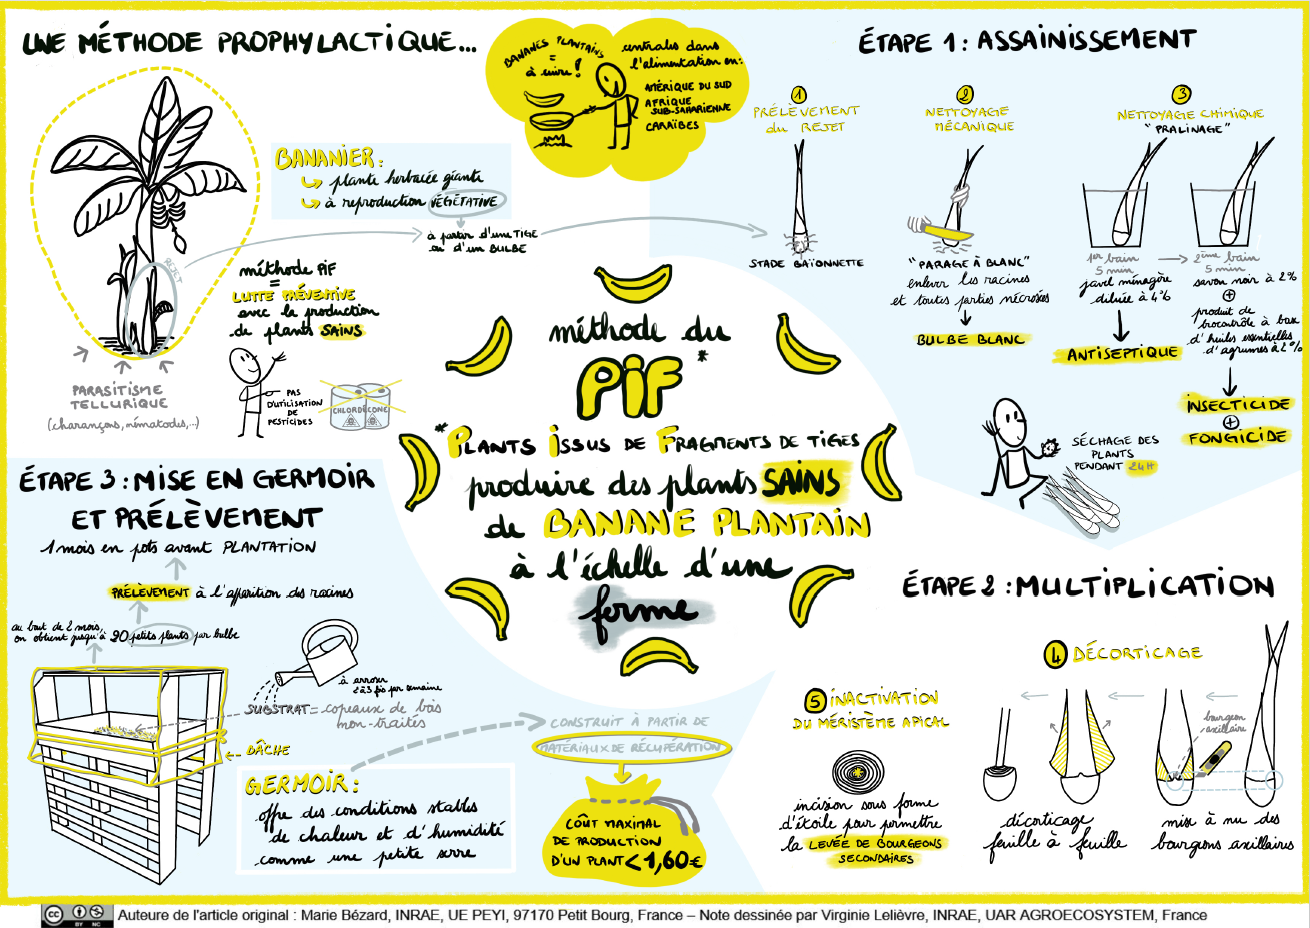 UNE MÉTHODE PROPHYLACTIQUE...
BANANES PLANTAINS
=
à cuire !
centrales dans
l'alimentation en :
AMÉRIQUE DU SUD
AFRIQUE
SUB-SAHARIENNE
CARAÏBES
BANANIER :
plante herbacée géante
à reproduction VÉGÉTATIVE
à partir d'une TIGE
ou d'un BULBE
REJET
méthode PIF
=
LUTTE PRÉVENTIVE
avec la production
de plants SAINS
PARASITISME
TELLURIQUE
(charançons, nématodes,...)
PAS
D'UTILISATION
DE
PESTICIDES
CHLORDÉCONE
méthode du
PIF*
*PLANTS ISSUS DE FRAGMENTS DE TIGES
produire des plants SAINS
de BANANE PLANTAIN
à l'échelle d'une
ferme
ÉTAPE 1 : ASSAINISSEMENT
1
PRÉLÈVEMENT
du REJET
STADE BAÏONNETTE
2
NETTOYAGE
MÉCANIQUE
"PARAGE À BLANC"
enlever les racines
et toutes parties nécrosées
BULBE BLANC
3
NETTOYAGE CHIMIQUE
"PRALINAGE"
1er bain
5 min
javel ménagère
diluée à 4%
ANTISEPTIQUE
2ème bain
5 min
savon noir à 2%
+
produit de
biocontrôle à base
d'huiles essentielles
d'agrumes à 2%
INSECTICIDE
+
FONGICIDE
SÉCHAGE DES
PLANTS
PENDANT 24H
ÉTAPE 2 : MULTIPLICATION
4 DÉCORTICAGE
bourgeon
axillaire
mise à nu des
bourgeons axillaires
décorticage
feuille à feuille
5 INACTIVATION
DU MÉRISTÈME APICAL
incision sous forme
d'étoile pour permettre
la LEVÉE DE BOURGEONS
SECONDAIRES
ÉTAPE 3 : MISE EN GERMOIR
ET PRÉLÈVEMENT
1 mois en pots avant PLANTATION
PRÉLÈVEMENT à l'apparition des racines
au bout de 2 mois,
on obtient jusqu'à 20 petits plants par bulbe
à arroser
2 à 3 fois par semaine
SUBSTRAT = copeaux de bois
non-traités
BÂCHE
GERMOIR :
offre des conditions stables
de chaleur et d'humidité
comme une petite serre
CONSTRUIT À PARTIR DE
MATÉRIAUX DE RÉCUPÉRATION
COÛT MAXIMAL
DE PRODUCTION
D'UN PLANT < 1,60€
cc BY NC Auteure de l'article original : Marie Bézard, INRAE, UE PEYI, 97170 Petit Bourg, France – Note dessinée par Virginie Lelièvre, INRAE, UAR AGROECOSYSTEM, France